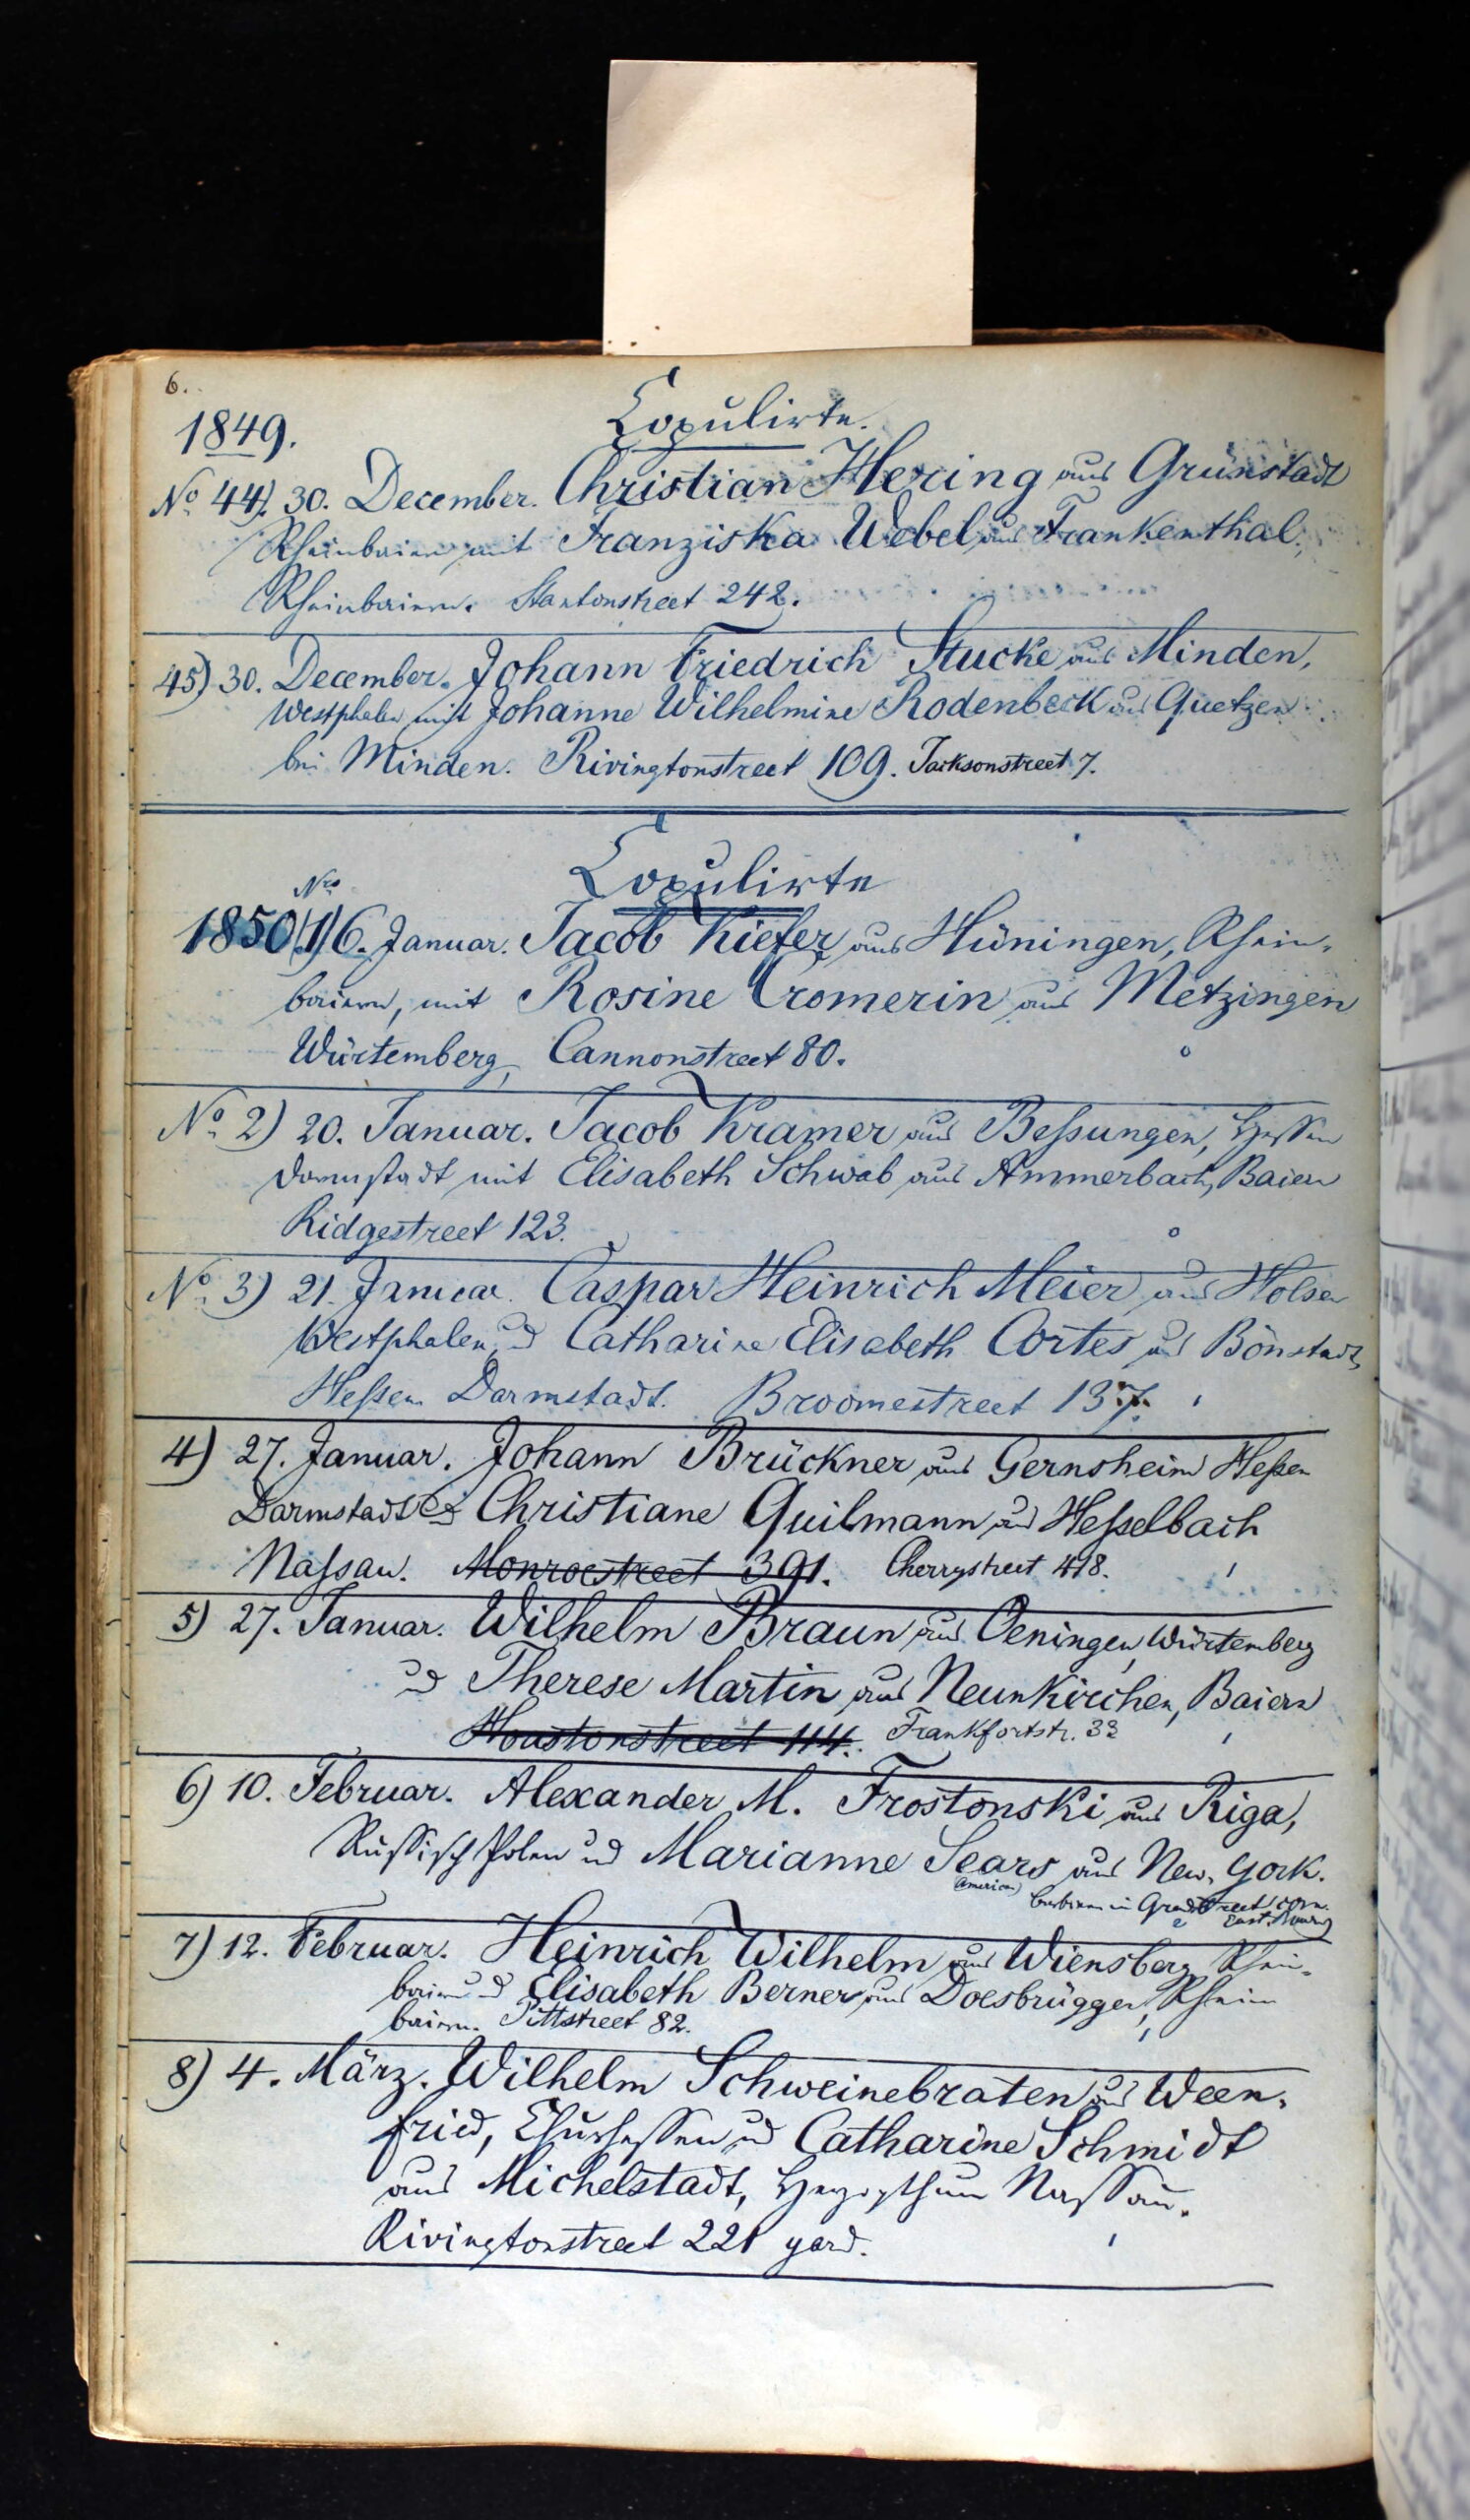 6.
1849.
Copulirte.
No. 44). 30. December. Christian Hering aus Grünstadt
Rheinbaiern mit Franziska Webel aus Frankenthal,
Rheinbaiern. Stantonstreet 242.
45) 30. December. Johann Friedrich Stucke aus Minden,
Westphalen mit Johanne Wilhelmine Rodenbeck aus Quetzen
bei Minden. Rivingtonstreet 109. Jacksonstreet 7.
Copulirte
No.
1850 1) 6. Januar. Jacob Kiefer aus Hüningen, Rhein-
baiern, mit Rosine Cromerin aus Metzingen
Würtemberg, Cannonstreet 80.
No. 2) 20. Januar. Jacob Kramer aus Beßungen, Hessen
Darmstadt mit Elisabeth Schwab aus Ammerbach, Baiern
Ridgestreet 123.
No. 3) 21. Januar. Caspar Heinrich Meier aus Holsen
Westphalen, und Catharine Elisabeth Cortes aus Bönstadt,
Heßen Darmstadt. Broomestreet 137.
4) 27. Januar. Johann Brückner aus Gernsheim Heßen
Darmstadt und Christiane Quilmann aus Heßelbach
Naßau. Monroestreet 391. Cherrystreet 418.
5) 27. Januar. Wilhelm Braun aus Oeningen, Würtemberg
und Therese Martin aus Neunkirchen, Baiern
Houstonstreet 114. Frankfortstr. 33
6) 10. Februar. Alexander M. Frostonski aus Riga,
Russisch Polen und Marianne Sears aus New-York.
(American)
in Grandstreet corn.
East
7) 12. Februar. Heinrich Wilhelm aus Wiensberg Rhein-
baiern und Elisabeth Berner aus Doesbrüggen, Rhein
baiern. Pittstreet 82.
8) 4. März. Wilhelm Schweinebraten aus Ween-
fried, Churhessen und Catharine Schmidt
aus Michelstadt, Herzogthum Nassau.
Rivingtonstreet 221 yard.